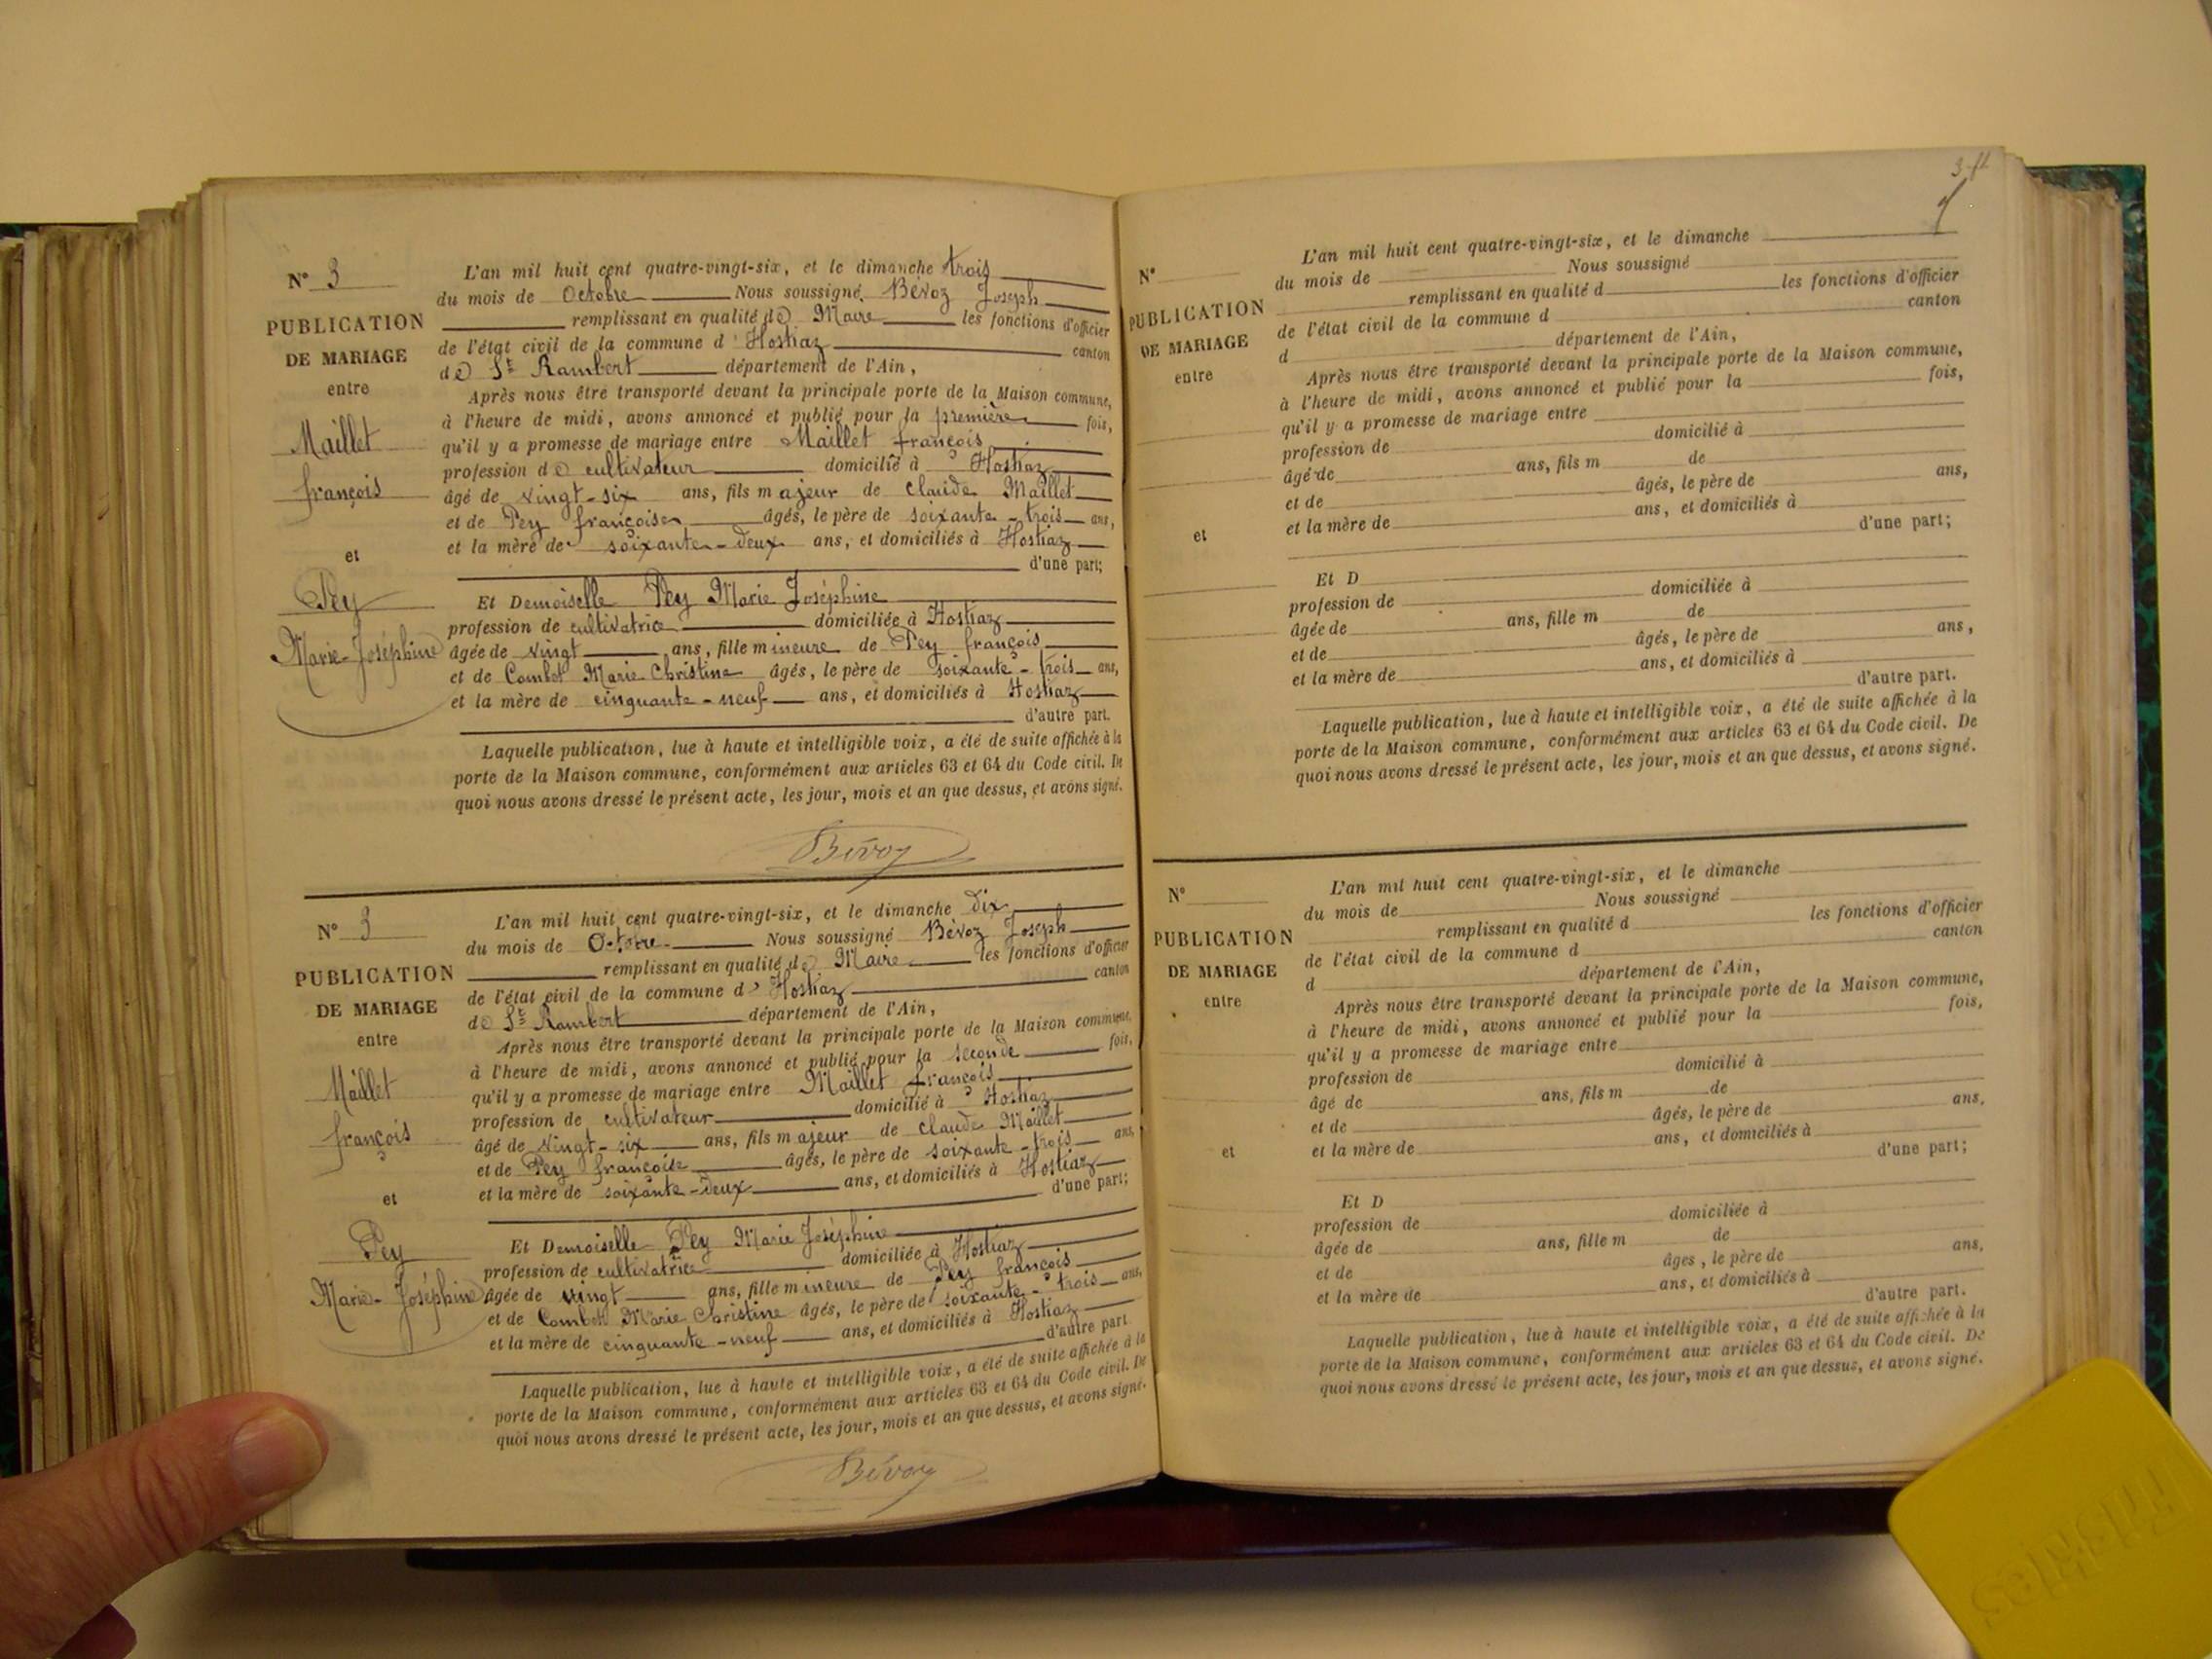 N° 3
PUBLICATION
DE MARIAGE
entre
Maillet
françois
et
Pey
Marie-Joséphine
L'an mil huit cent quatre-vingt-six, et le dimanche trois
du mois de Octobre Nous soussigné Bévoz Joseph
remplissant en qualité de Maire les fonctions d'officier
de l'état civil de la commune d' Hostiaz canton
de St Rambert département de l'Ain,
Après nous être transporté devant la principale porte de la Maison commune,
à l'heure de midi, avons annoncé et publié pour la première fois,
qu'il y a promesse de mariage entre Maillet françois
profession de cultivateur domicilié à Hostiaz
âgé de vingt-six ans, fils majeur de Claude Maillet
et de Pey françoise âgés, le père de soixante-trois ans,
et la mère de soixante-deux ans, et domiciliés à Hostiaz
d'une part;
Et Demoiselle Pey Marie Joséphine
profession de cultivatrice domiciliée à Hostiaz
âgée de vingt ans, fille mineure de Pey françois
et de Combet Marie Christine âgés, le père de soixante-trois ans,
et la mère de cinquante-neuf ans, et domiciliés à Hostiaz
d'autre part.
Laquelle publication, lue à haute et intelligible voix, a été de suite affichée à la
porte de la Maison commune, conformément aux articles 63 et 64 du Code civil. De
quoi nous avons dressé le présent acte, les jour, mois et an que dessus, et avons signé.
Bévoz
N° 3
PUBLICATION
DE MARIAGE
entre
Maillet
françois
et
Pey
Marie-Joséphine
L'an mil huit cent quatre-vingt-six, et le dimanche dix
du mois de Octobre Nous soussigné Bévoz Joseph
remplissant en qualité de Maire les fonctions d'officier
de l'état civil de la commune d' Hostiaz canton
de St Rambert département de l'Ain,
Après nous être transporté devant la principale porte de la Maison commune,
à l'heure de midi, avons annoncé et publié pour la seconde fois,
qu'il y a promesse de mariage entre Maillet françois
profession de cultivateur domicilié à Hostiaz
âgé de vingt-six ans, fils majeur de Claude Maillet
et de Pey françoise âgés, le père de soixante-trois ans,
et la mère de soixante-deux ans, et domiciliés à Hostiaz
d'une part;
Et Demoiselle Pey Marie Joséphine
profession de cultivatrice domiciliée à Hostiaz
âgée de vingt ans, fille mineure de Pey françois
et de Combet Marie Christine âgés, le père de soixante-trois ans,
et la mère de cinquante-neuf ans, et domiciliés à Hostiaz
d'autre part
Laquelle publication, lue à haute et intelligible voix, a été de suite affichée à la
porte de la Maison commune, conformément aux articles 63 et 64 du Code civil. De
quoi nous avons dressé le présent acte, les jour, mois et an que dessus, et avons signé.
Bévoz
N°
PUBLICATION
DE MARIAGE
entre
et
L'an mil huit cent quatre-vingt-six, et le dimanche
du mois de Nous soussigné
remplissant en qualité d les fonctions d'officier
de l'état civil de la commune d canton
d département de l'Ain,
Après nous être transporté devant la principale porte de la Maison commune,
à l'heure de midi, avons annoncé et publié pour la fois,
qu'il y a promesse de mariage entre
profession de domicilié à
âgé de ans, fils m de
et de âgés, le père de ans,
et la mère de ans, et domiciliés à
d'une part;
Et D
profession de domiciliée à
âgée de ans, fille m de
et de âgés, le père de ans,
et la mère de ans, et domiciliés à
d'autre part.
Laquelle publication, lue à haute et intelligible voix, a été de suite affichée à la
porte de la Maison commune, conformément aux articles 63 et 64 du Code civil. De
quoi nous avons dressé le présent acte, les jour, mois et an que dessus, et avons signé.
N°
PUBLICATION
DE MARIAGE
entre
et
L'an mil huit cent quatre-vingt-six, et le dimanche
du mois de Nous soussigné
remplissant en qualité d les fonctions d'officier
de l'état civil de la commune d canton
d département de l'Ain,
Après nous être transporté devant la principale porte de la Maison commune,
à l'heure de midi, avons annoncé et publié pour la fois,
qu'il y a promesse de mariage entre
profession de domicilié à
âgé de ans, fils m de
et de âgés, le père de ans,
et la mère de ans, et domiciliés à
d'une part;
Et D
profession de domiciliée à
âgée de ans, fille m de
et de âges, le père de ans,
et la mère de ans, et domiciliés à
d'autre part.
Laquelle publication, lue à haute et intelligible voix, a été de suite affichée à la
porte de la Maison commune, conformément aux articles 63 et 64 du Code civil. De
quoi nous avons dressé le présent acte, les jour, mois et an que dessus, et avons signé.